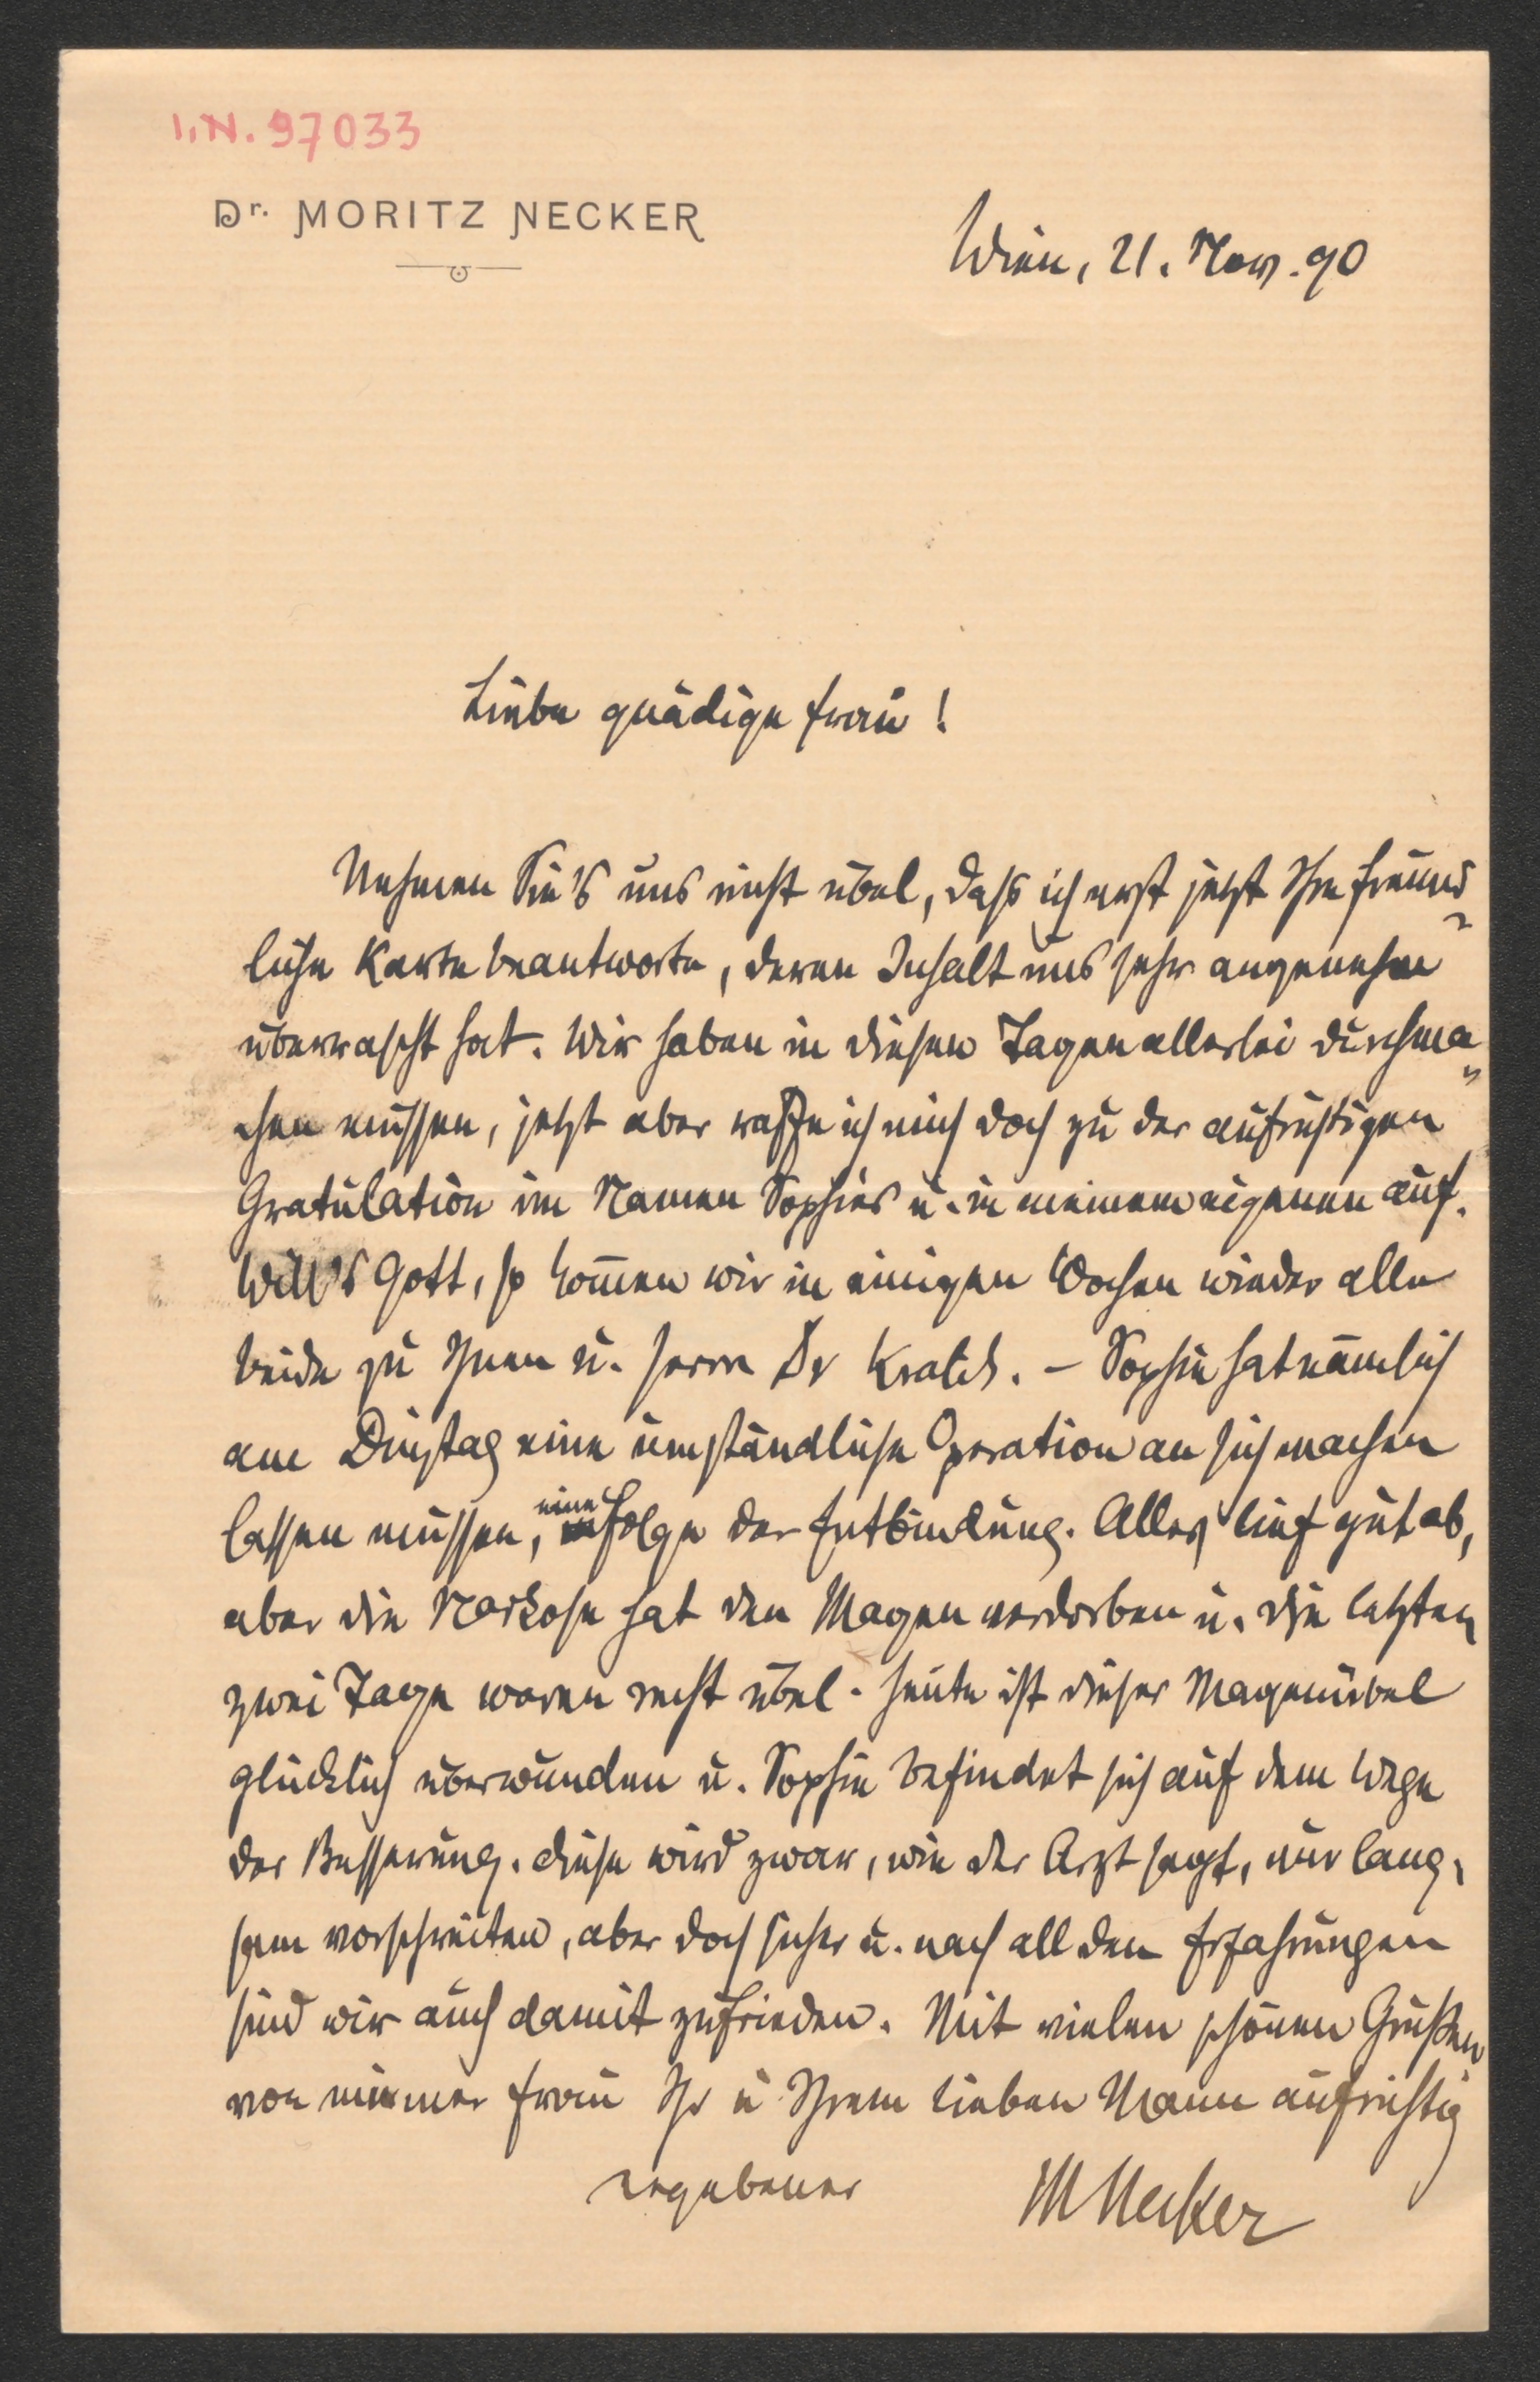 I.N. 97033
Dr. MORITZ NECKER
Wien, 21. Nov. 90
Liebe gnädige Frau!
Nehmen Sie's uns nicht übel, daß ich erst jetzt Ihre freund-
liche Karte beantworte, deren Inhalt uns sehr angenehm
überrascht hat. Wir haben in diesen Tagen allerlei durchma-
chen müssen, jetzt aber raffe ich mich doch zu der aufrichtigen
Gratulation im Namen Sophies u. in meinem eigenen auf.
Will's Gott, so kom̅en wir in einigen Wochen wieder alle
beide zu Ihnen u. Herrn Dr – Sophie hat nämlich
am Dinstag eine umständliche Operation an sich machen
lassen müssen, eine Folge der Entbindung. Alles lief gut ab,
aber die Narkose hat den Magen verdorben u. die letzten
zwei Tage waren recht übel. Heute ist dieses Magenübel
glücklich überwunden u. Sophie befindet sich auf dem Wege
der Besserung. Diese wird zwar, wie der Arzt sagt, nur lang-
sam vorschreiten, aber doch sicher u. nach all den Erfahrungen
sind wir auch damit zufrieden. Mit vielen schönen Grüßen
von meiner Frau Ihr u Ihrem lieben Mann aufrichtig
ergebener MNecker